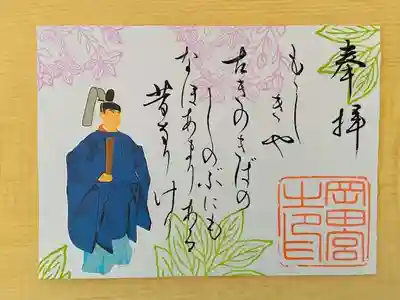 奉拝
もゝしきや
古きのきばの
しのぶにも
なほあまりある
昔なりけり
岡田宮
之印